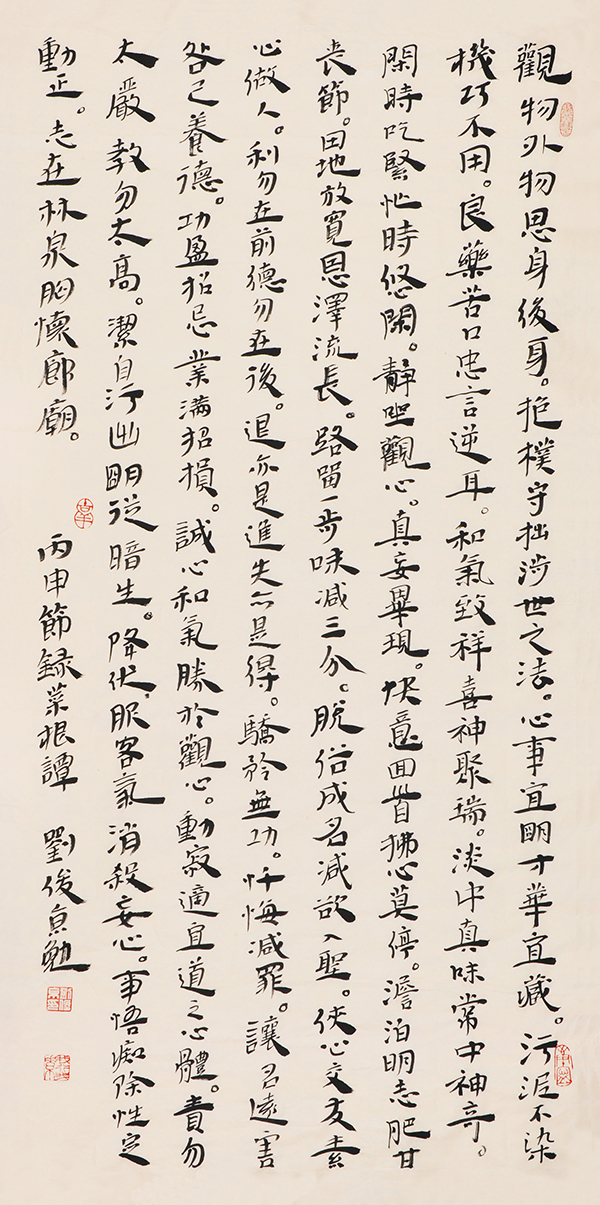 觀物外物思身後身。抱樸守拙涉世之法。心事宜明才華宜藏。污泥不染
機巧不用。良藥苦口忠言逆耳。和氣致祥喜神聚瑞。淡中真味常中神奇。
閑時吃緊忙時悠閑。靜坐觀心。真妄畢現。快意回首拂心莫停。澹泊明志肥甘
喪節。田地放寬恩澤流長。路留一步味減三分。脫俗成名減欲入聖。俠心交友素
心做人。利勿在前德勿在後。退亦是進失亦是得。驕矜無功。忏悔減罪。讓名遠害
咎己養德。功盈招忌業滿招損。誠心和氣勝於觀心。動寂適宜道之心體。責勿
太嚴教勿太高。潔自污出明從暗生。降伏服客氣消殺妄心。事悟痴除性定
動正。志在林泉胸懷廊廟。
丙申節録菜根譚 劉俊京勉